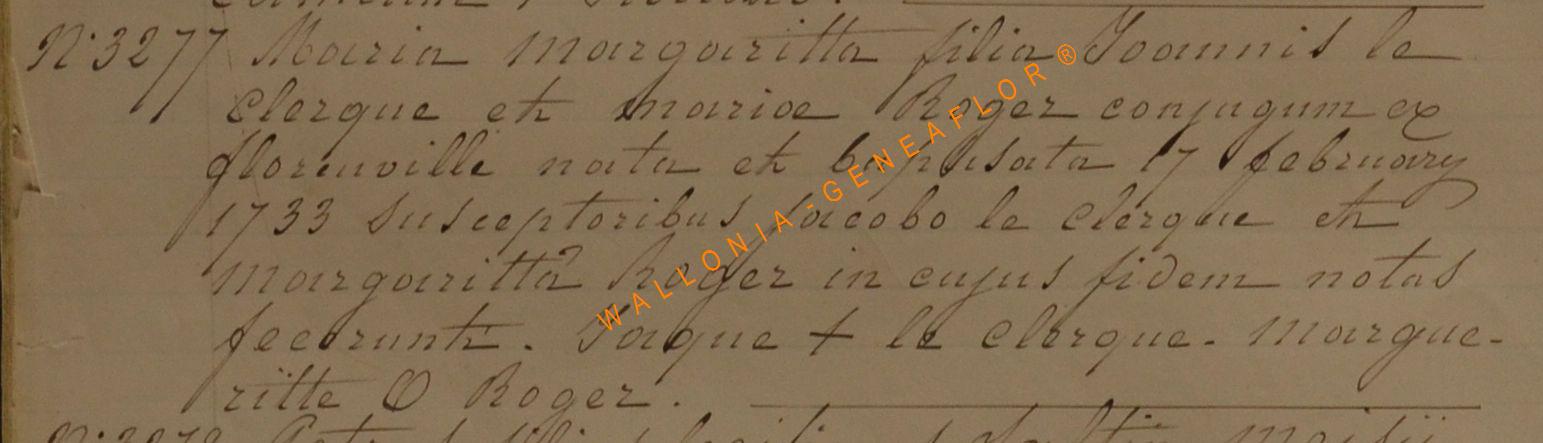 N.° 3277 Maria Margaritta filia Joannis le
Clerque et mariae Roger conjugum ex
florenville nata et baptisata 17 february
1733 Susceptoribus Jacobo le Clerque et
Margaritta Roger in cujus fidem notas
fecerunt. Jaque + le Clerque. Margue-
ritte O Roger.
WALLONIA-GENEAFLOR®